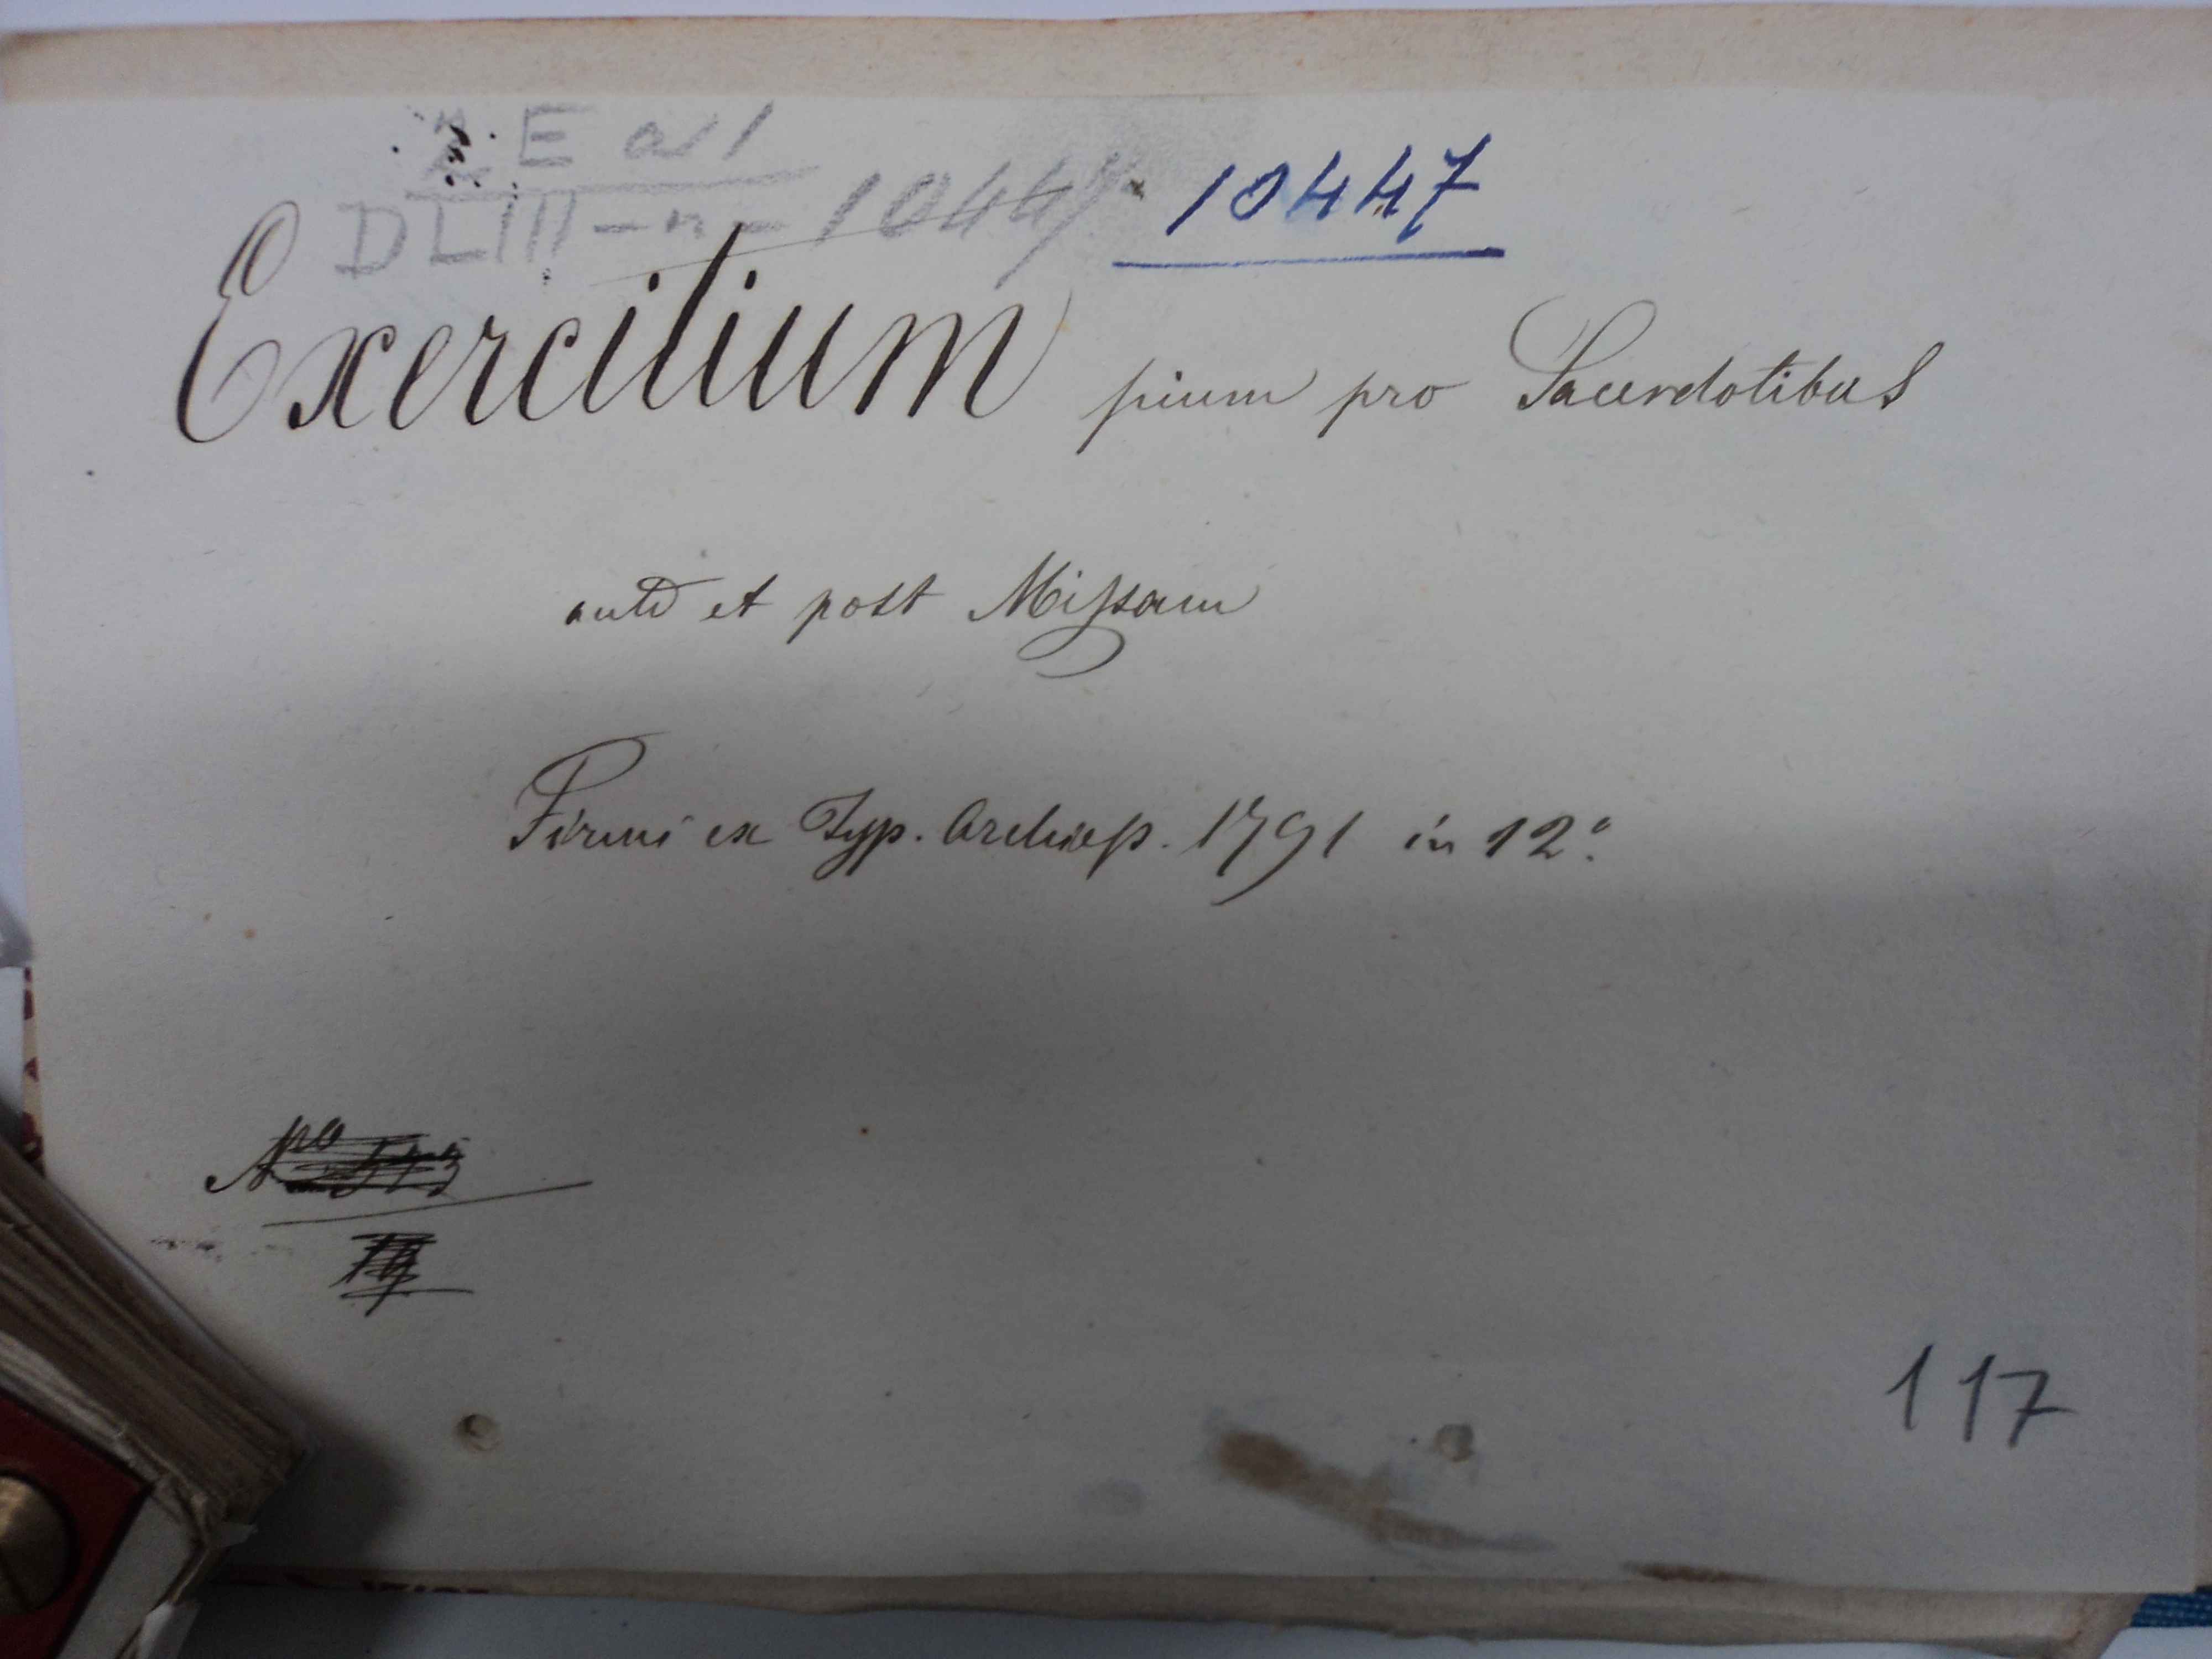 E a 1
DLIII - n - 10447 10447
Exercitium pium pro Sacerdotibus
ante et post Missam
Firmi ex Typ. Archiep. 1791 in 12º
Nº
117